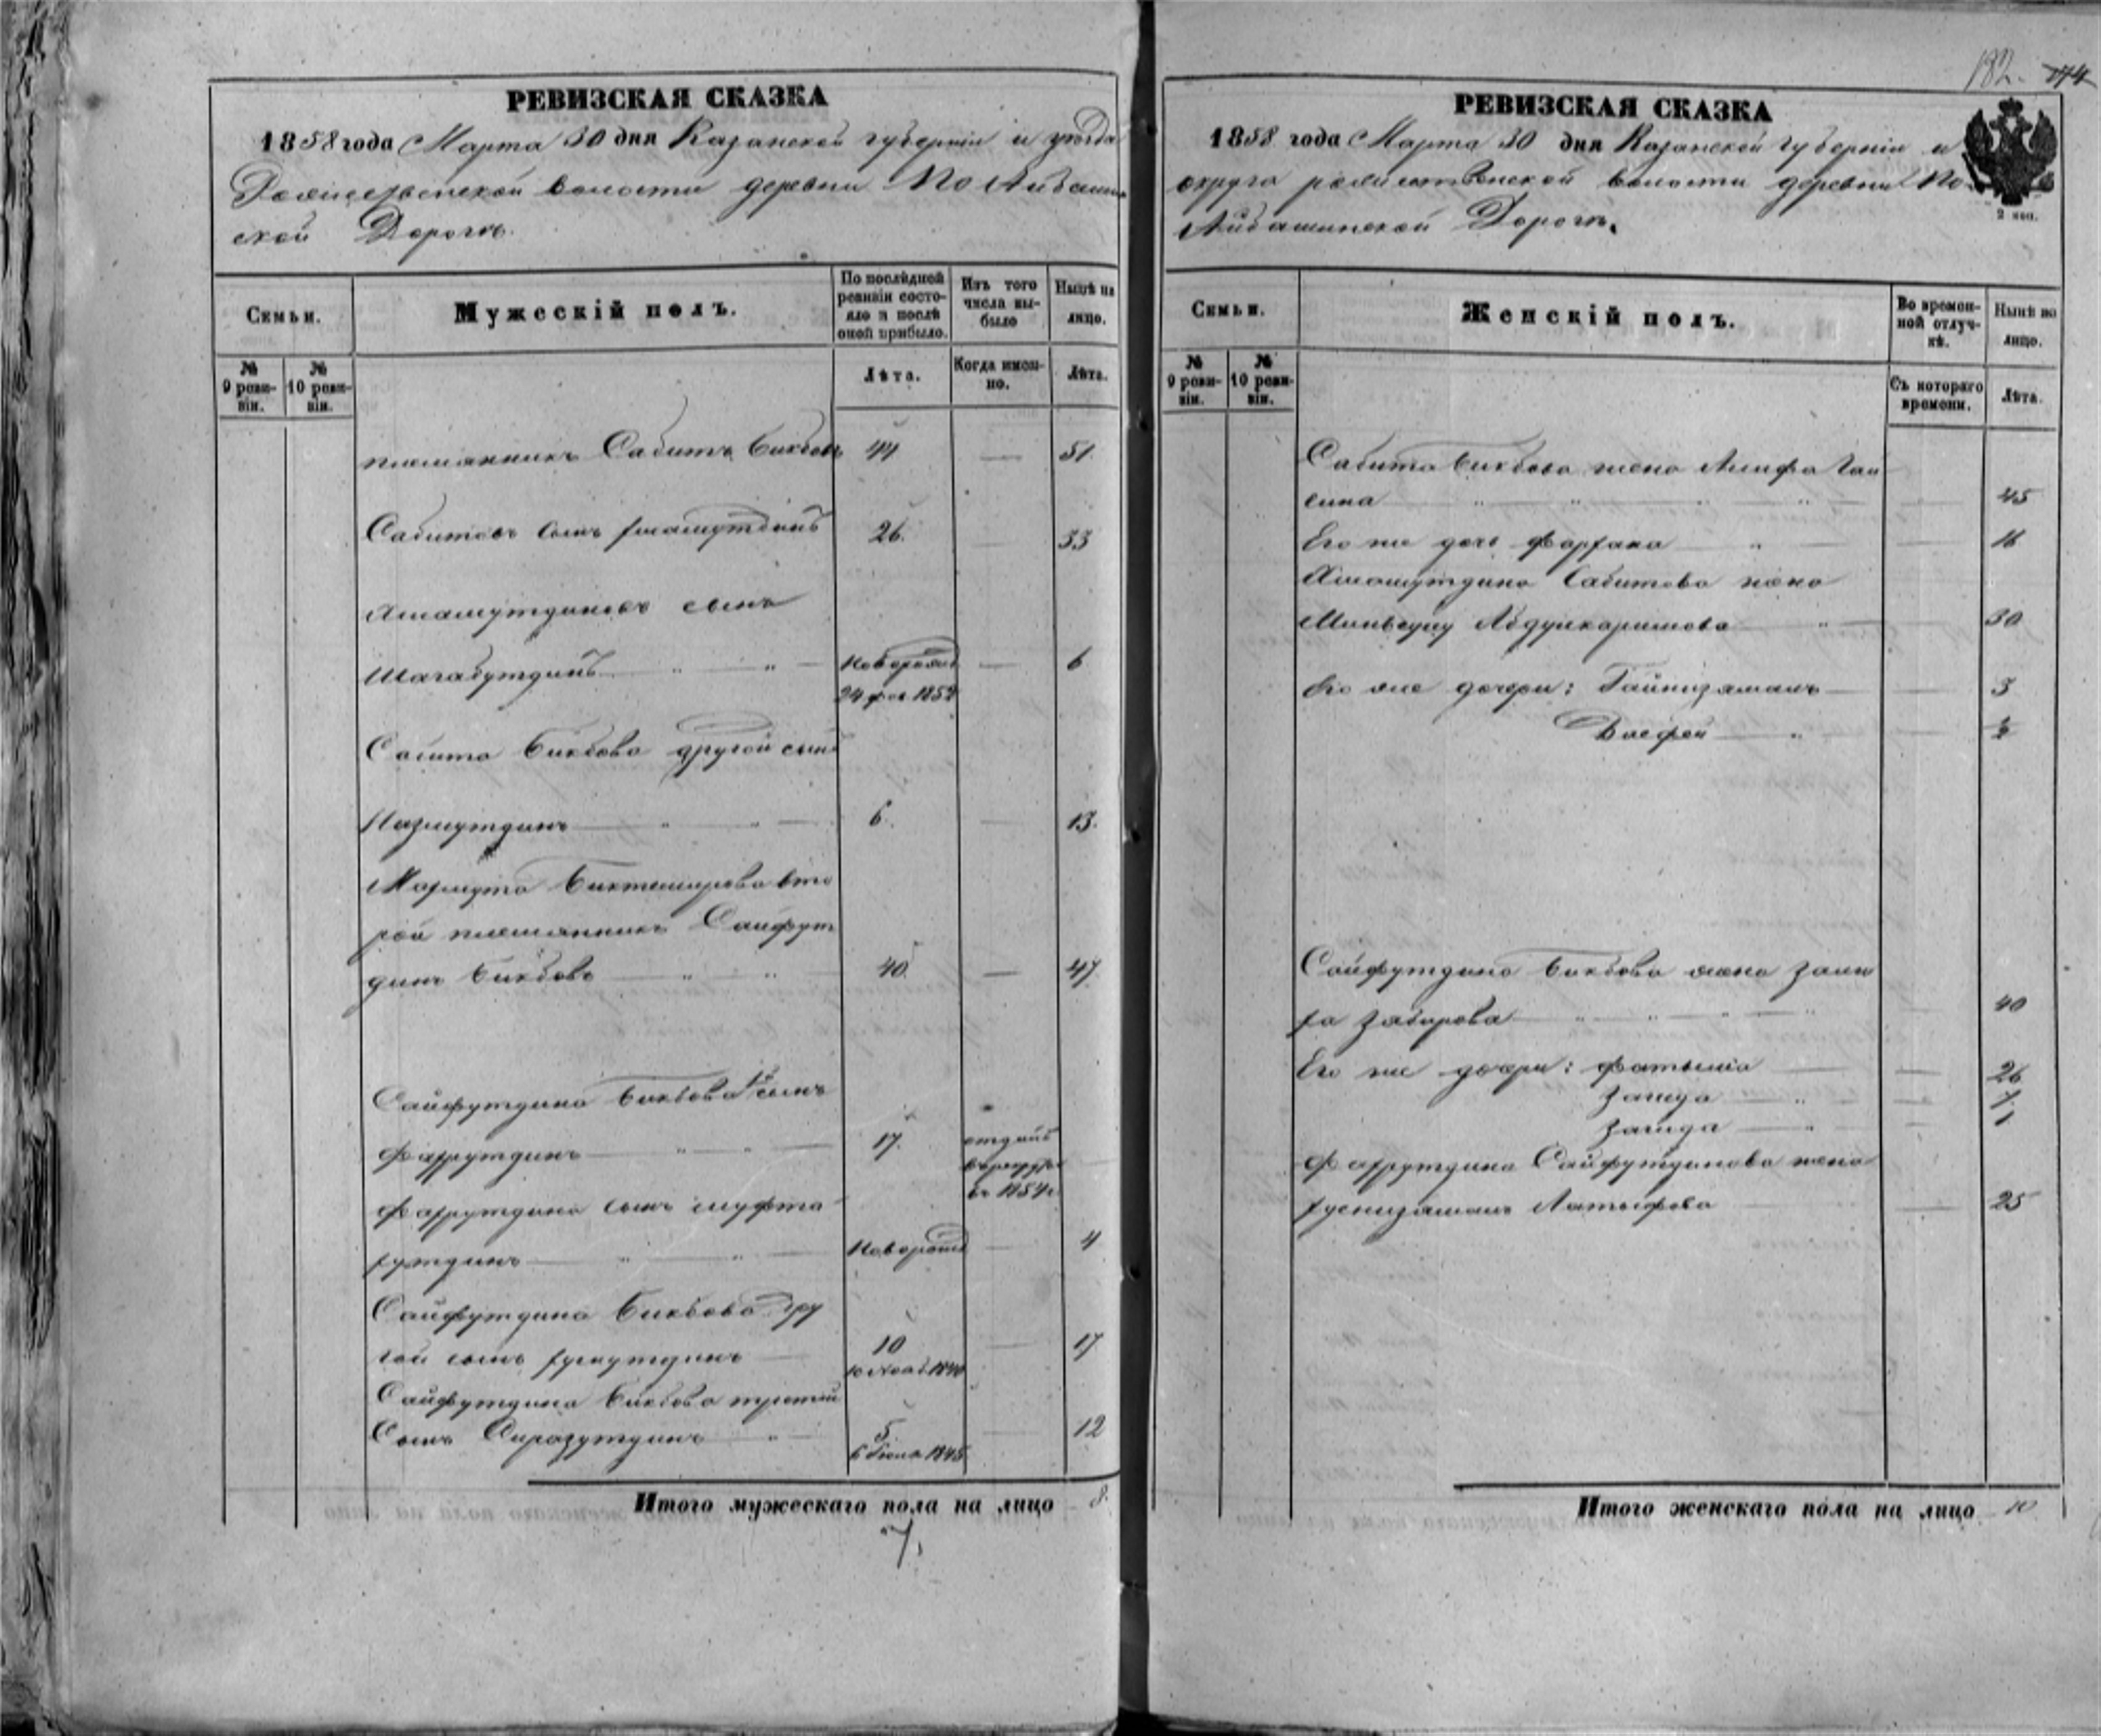 РЕВИЗСКАЯ СКАЗКА
1858 года Марта 30 дня Казанской губернии и уезда
волости деревни По Айбашин
ской Дороге.
Семьи.
Мужескій полъ.
По послѣдней ревизіи состояло и послѣ оной прибыло.
Изъ того числа выбыло
Нынѣ на лицо.
№ 9 ревизіи.
№ 10 ревизіи.
Лѣта.
Когда именно.
Лѣта.
племянникъ Сабитъ Бикбовъ 44 — 51.
Сабитовъ сынъ 26. — 33
сынъ
Шагабутдинъ — " — " — Новорожд — 6
24 фев 1852
Сабита Бикбова другой сынъ
Назмутдинъ — " — " — 6. — 13.
Махмута Биктемирова вто
рой племянникъ Сайфут
динъ Бикбовъ — " — " — 40. — 47.
Сайфутдина Бикбова 1й сынъ
Фахрутдинъ — " — " — 17. отданъ
въ рекруты
въ 1854 г.
Фахрутдина сынъ
хутдинъ — " — " — Новорожд — 4
Сайфутдина Бикбова дру
гой сынъ — 10 — 17
Сайфутдина Бикбова третій
Сынъ Сиразутдинъ — " — 5. — 12
6 Іюня 1845
Итого мужескаго пола на лицо 8.
7.
182. 174
РЕВИЗСКАЯ СКАЗКА
1858 года Марта 30 дня Казанской губерніи и
округа волости деревни По
Айбашинской Дороге.
2 коп.
Семьи.
Женскій полъ.
Во временной отлучкѣ.
Нынѣ на лицо.
№ 9 ревизіи.
№ 10 ревизіи.
Съ котораго времени.
Лѣта.
Сабита Бикбова жена
сина — " — " — " — " — 45
Его же дочь — " — — 16
Сабитова жена
Абдулкаримова — " — 30
Его же дочери: Гайнизямаль — — 3
— " —
Сайфутдина Бикбова жена Зали
ха Забирова — " — " — " — " 40
Его же дочери: Фатыма — — 26
Загида — " — — 7.
Загида — " — 1
Фахрутдина Сайфутдинова жена
Латыфова — 25
Итого женскаго пола на лицо 10